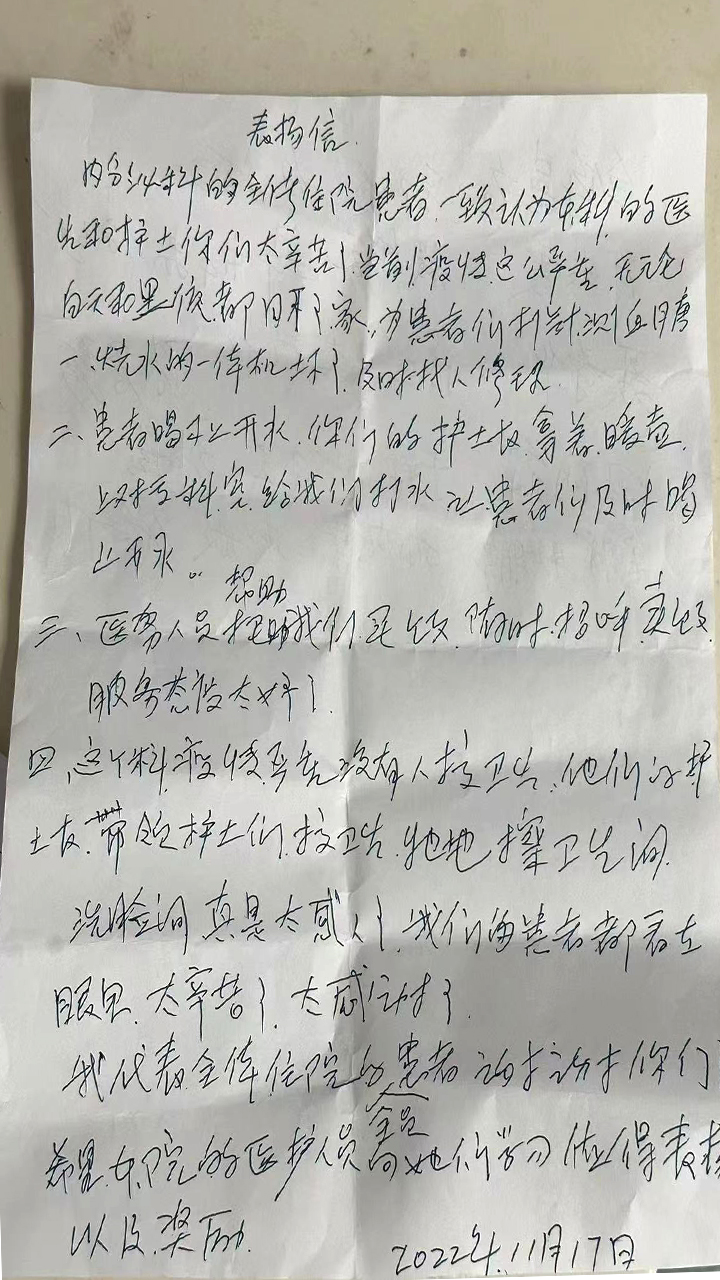 表扬信.
内分泌科的全体住院患者,一致认为东科的医
生和护士你们太辛苦了,当前疫情这么严重,无论
白天和黑夜,都离了家,为患者们打针,测血糖
一、烧水的一体机坏了,及时找人修理
二、患者喝不上开水,你们的护士长,拿着,暖壶,
科室,给我们打水 让患者们及时喝
上开水。
帮助
三、医务人员 我们 买饭,随时,招呼,卖饭,
服务态度太好了.
四、这个科,疫情严重没有人搞卫生,他们的护
士长,带领护士们,搞卫生,拖地 擦卫生间.
洗脸间 真是太感人了,我们的患者都看在
眼里,太辛苦了,太感动了.
我代表全体,住院的患者 谢谢你们
全员
希望,东院的医护人员向她们学习 值得表扬
以及,奖励.
2022年,11月17日